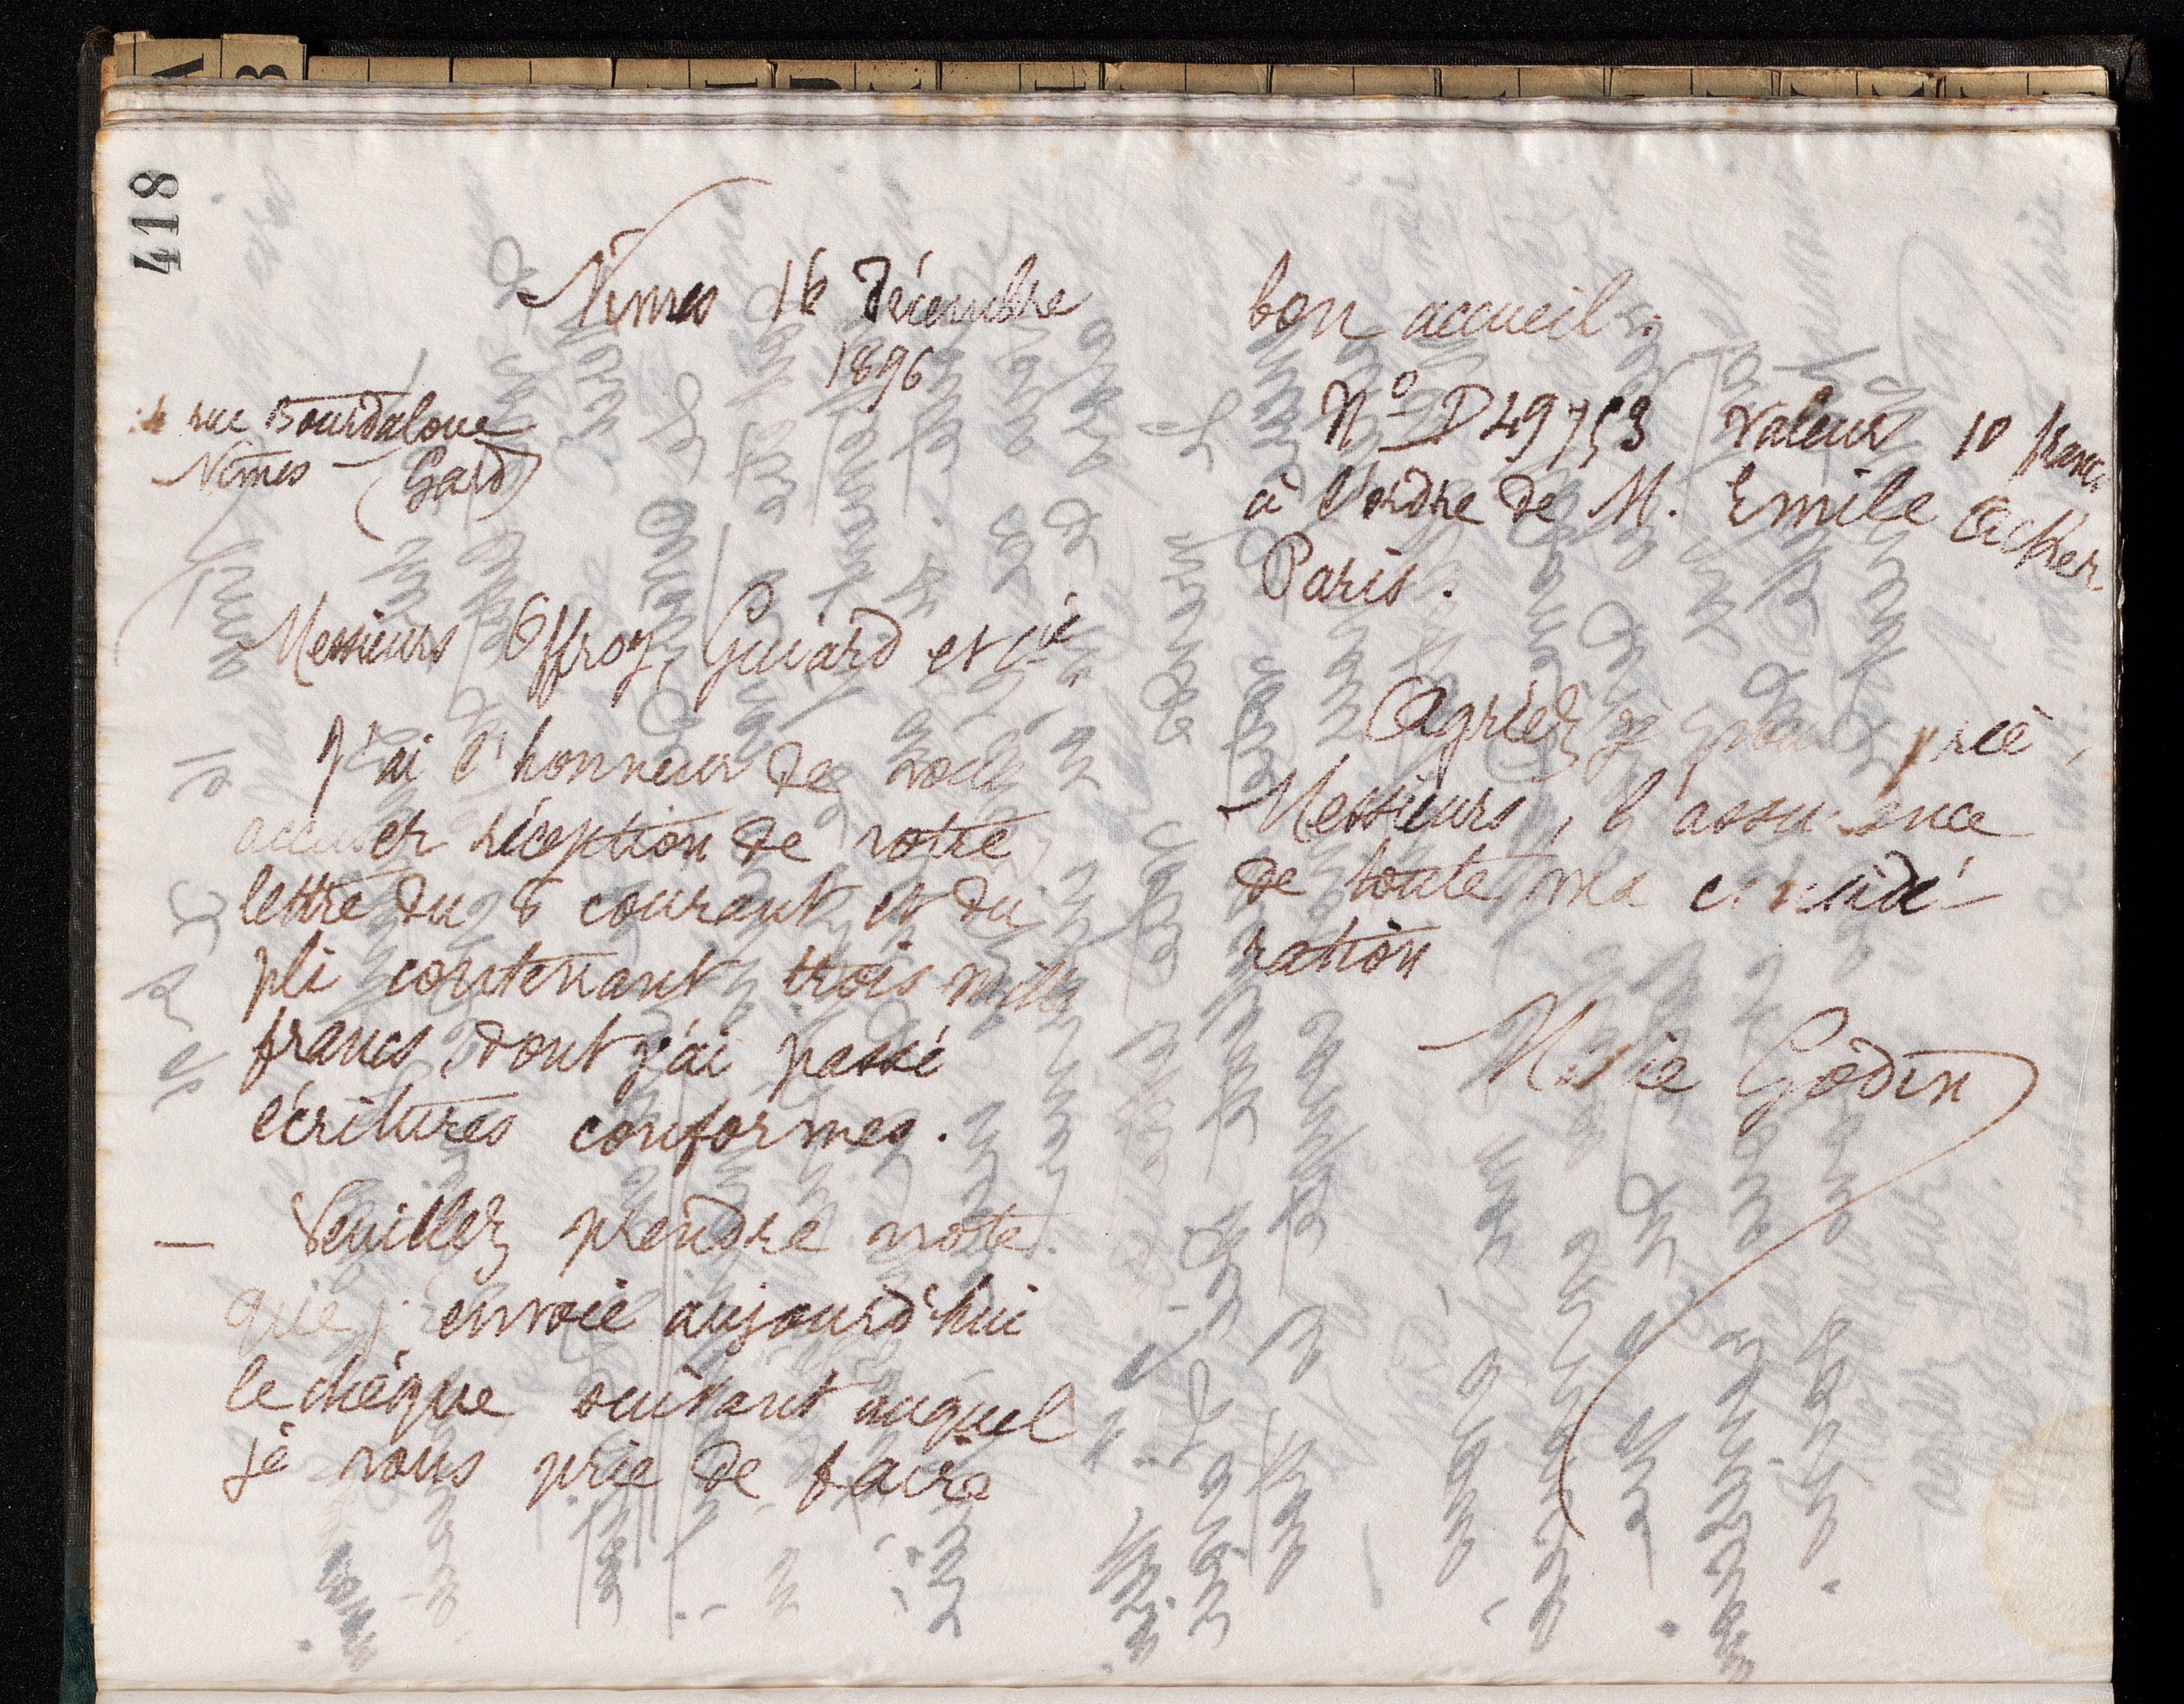 418
Nîmes 16 décembre
1896
rue Bourdaloue
Nîmes – (Gard)
Messieurs Offroy, Guiard et Cie,
J'ai l'honneur de vous
accuser réception de votre
lettre du 8 courant et du
pli contenant trois mille
francs dont j'ai passé
écritures conformes.
— Veuillez prendre note
que j'envoie aujourd'hui
le chèque suivant auquel
je vous prie de faire
bon accueil :
No D49753 valeur 10 francs
à l'ordre de M. Emile
Paris.
Agréez, je vous prie,
Messieurs, l'assurance
de toute ma considé-
ration
Marie Godin